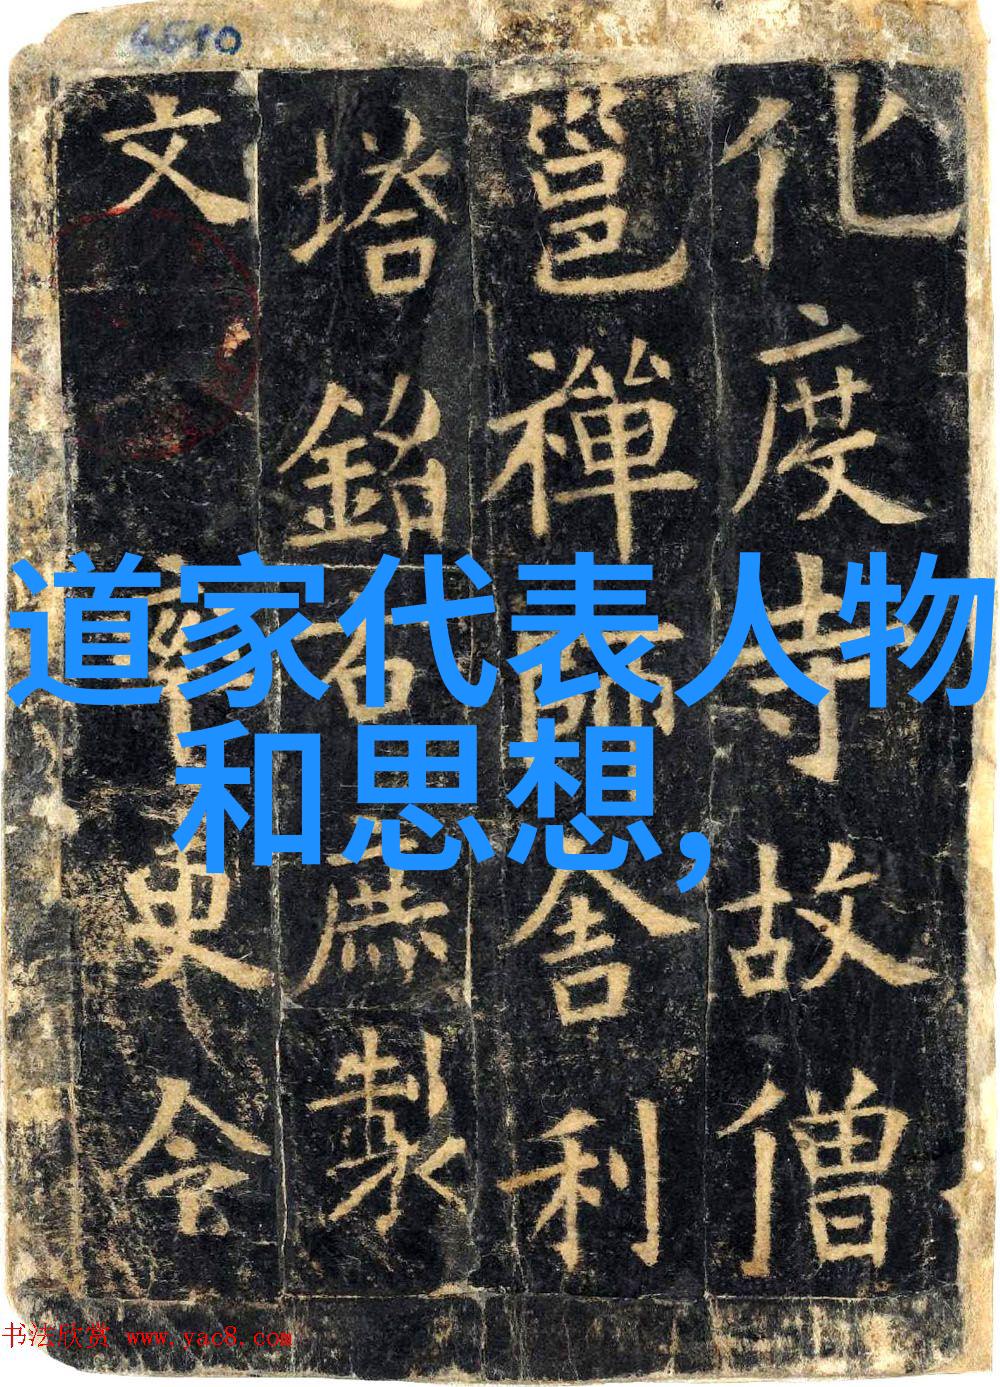 化度寺故僧
邕禪師舍利
塔銘右庶製
文率更令
道家代表人物
和思想,
书法欣赏 www.yac8.com